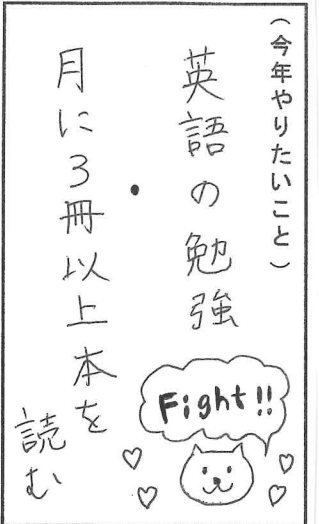 （今年やりたいこと）
英語の勉強
・
月に3冊以上本を
読む
Fight!!